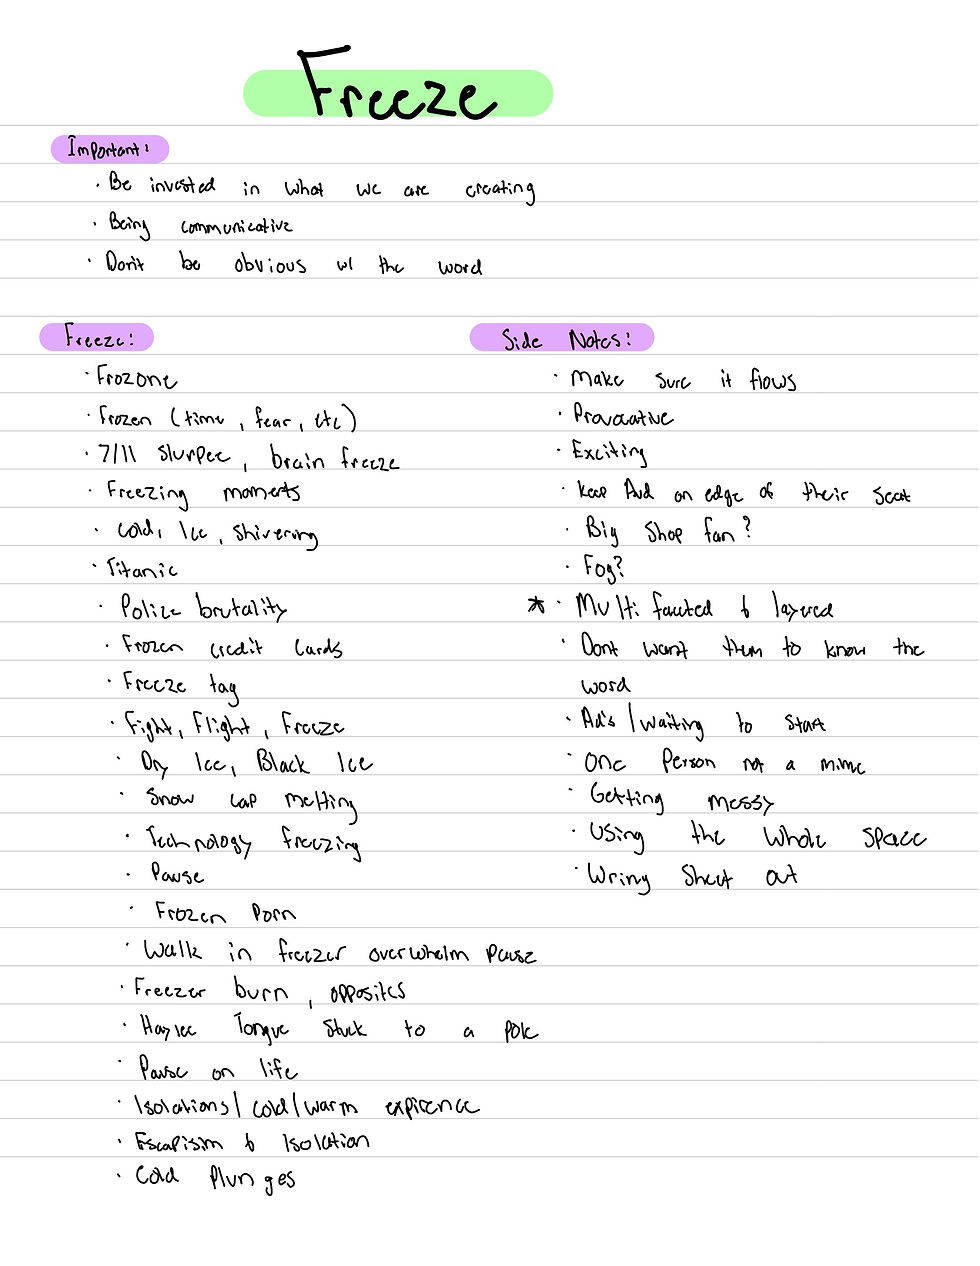 Freeze
Important:
· Be invested in what we are creating
· Being communicative
· Don't be obvious w/ the word
Freeze:
· Frozone
· Frozen (time, fear, etc)
· 7/11 Slurpee, brain freeze
· Freezing moments
· Cold, Ice, Shivering
· Titanic
· Police brutality
· Frozen credit cards
· Freeze tag
· Fight, Flight, Freeze
· Dry Ice, Black Ice
· Snow cap melting
· Technology freezing
· Pause
· Frozen Porn
· Walk in freezer overwhelm pause
· Freezer burn, opposites
· Haylee Tongue stuck to a pole
· Pause on life
· Isolations/cold/warm expirence
· Escapisim & Isolation
· Cold Plunges
Side Notes:
· Make sure it flows
· Provocative
· Exciting
· Keep Aud on edge of their seat
· Big Shop fan?
· Fog?
* · Multi faceted & layered
· Dont want them to know the
word
· Ad's/waiting to start
· One Person not a mime
· Getting messy
· Using the whole space
· Wring Sheet out